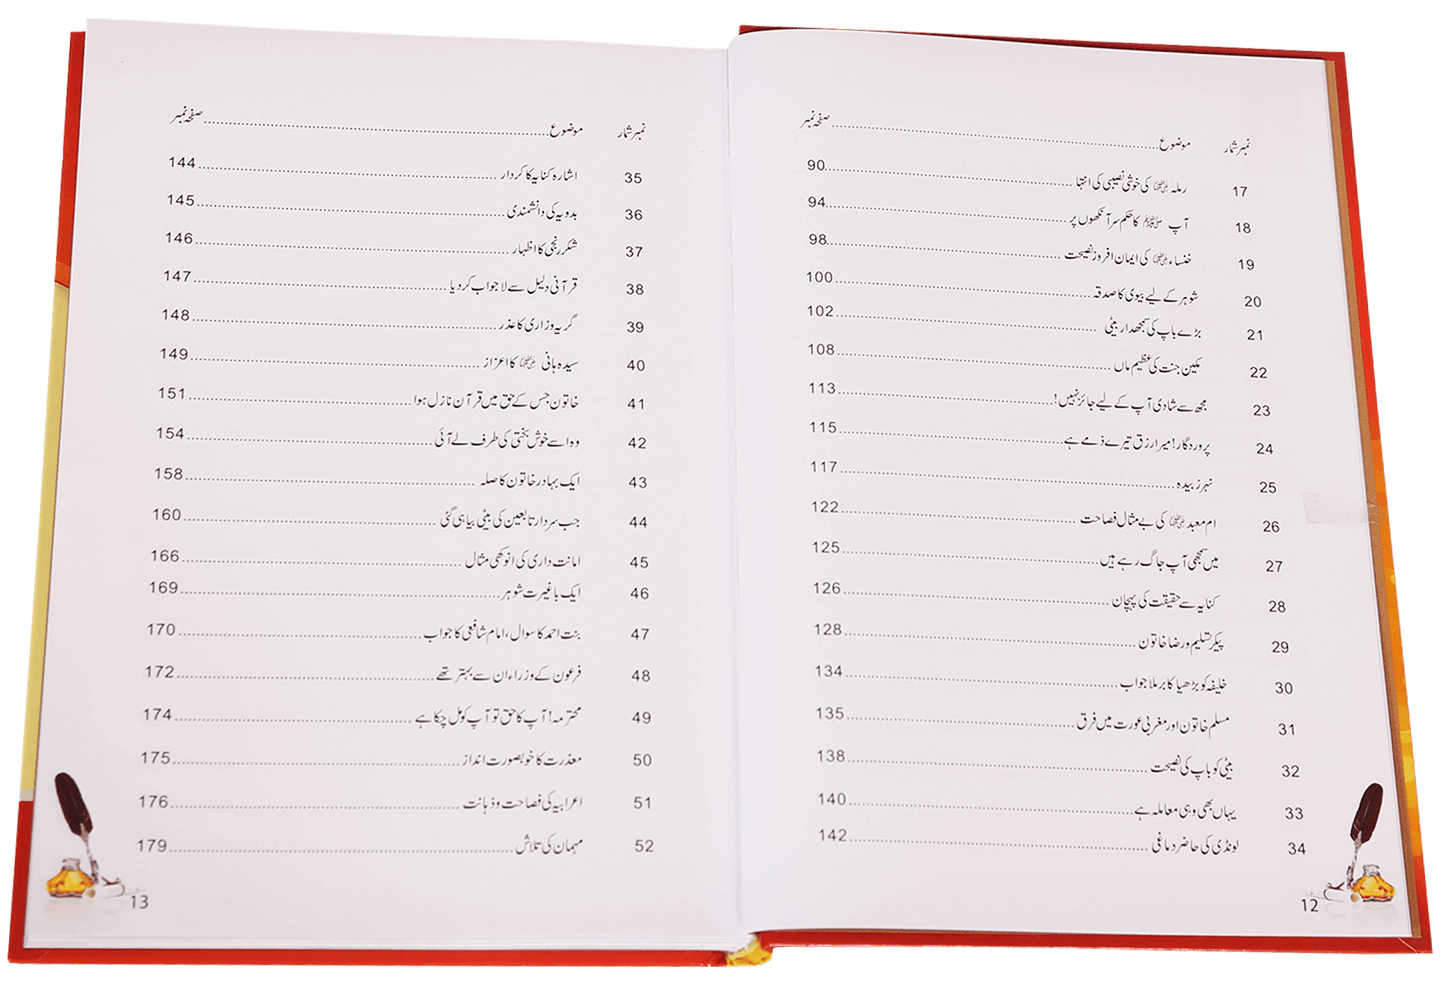 نمبر شمار موضوع صفحہ نمبر
17 رملہ رضی اللہ عنہا کی خوشی نصیبی کی انتہا 90
18 آپ ﷺ کا حکم سر آنکھوں پر 94
19 خنساء رضی اللہ عنہا کی ایمان افروز نصیحت 98
20 شوہر کے لیے بیوی کا صدقہ 100
21 بڑے باپ کی سمجھدار بیٹی 102
22 مکین جنت کی عظیم ماں 108
23 مجھ سے شادی آپ کے لیے جائز نہیں! 113
24 پروردگار! میرا رزق تیرے ذمے ہے 115
25 نہر زبیدہ 117
26 ام معبد رضی اللہ عنہا کی بے مثال فصاحت 122
27 میں سمجھی آپ جاگ رہے ہیں 125
28 کنایہ سے حقیقت کی پہچان 126
29 پیکر تسلیم و رضا خاتون 128
30 خلیفہ کو بڑھیا کا برملا جواب 134
31 مسلم خاتون اور مغربی عورت میں فرق 135
32 بیٹی کو باپ کی نصیحت 138
33 یہاں بھی وہی معاملہ ہے 140
34 لونڈی کی حاضر دماغی 142
12
نمبر شمار موضوع صفحہ نمبر
35 اشارہ کنایہ کا کردار 144
36 بدویہ کی دانشمندی 145
37 شکر رنجی کا اظہار 146
38 قرآنی دلیل سے لا جواب کر دیا 147
39 گریہ وزاری کا عذر 148
40 سیدہ ہانی رضی اللہ عنہا کا اعزاز 149
41 خاتون جس کے حق میں قرآن نازل ہوا 151
42 وہ اسے خوش بختی کی طرف لے آئی 154
43 ایک بہادر خاتون کا صلہ 158
44 جب سردار تابعین کی بیٹی بیاہی گئی 160
45 امانت داری کی انوکھی مثال 166
46 ایک باغیرت شوہر 169
47 بنت احمد کا سوال، امام شافعی کا جواب 170
48 فرعون کے وزراء ان سے بہتر تھے 172
49 محترمہ! آپ کا حق تو آپ کو مل چکا ہے 174
50 معذرت کا خوبصورت انداز 175
51 اعرابیہ کی فصاحت و ذہانت 176
52 مہمان کی تلاش 179
13